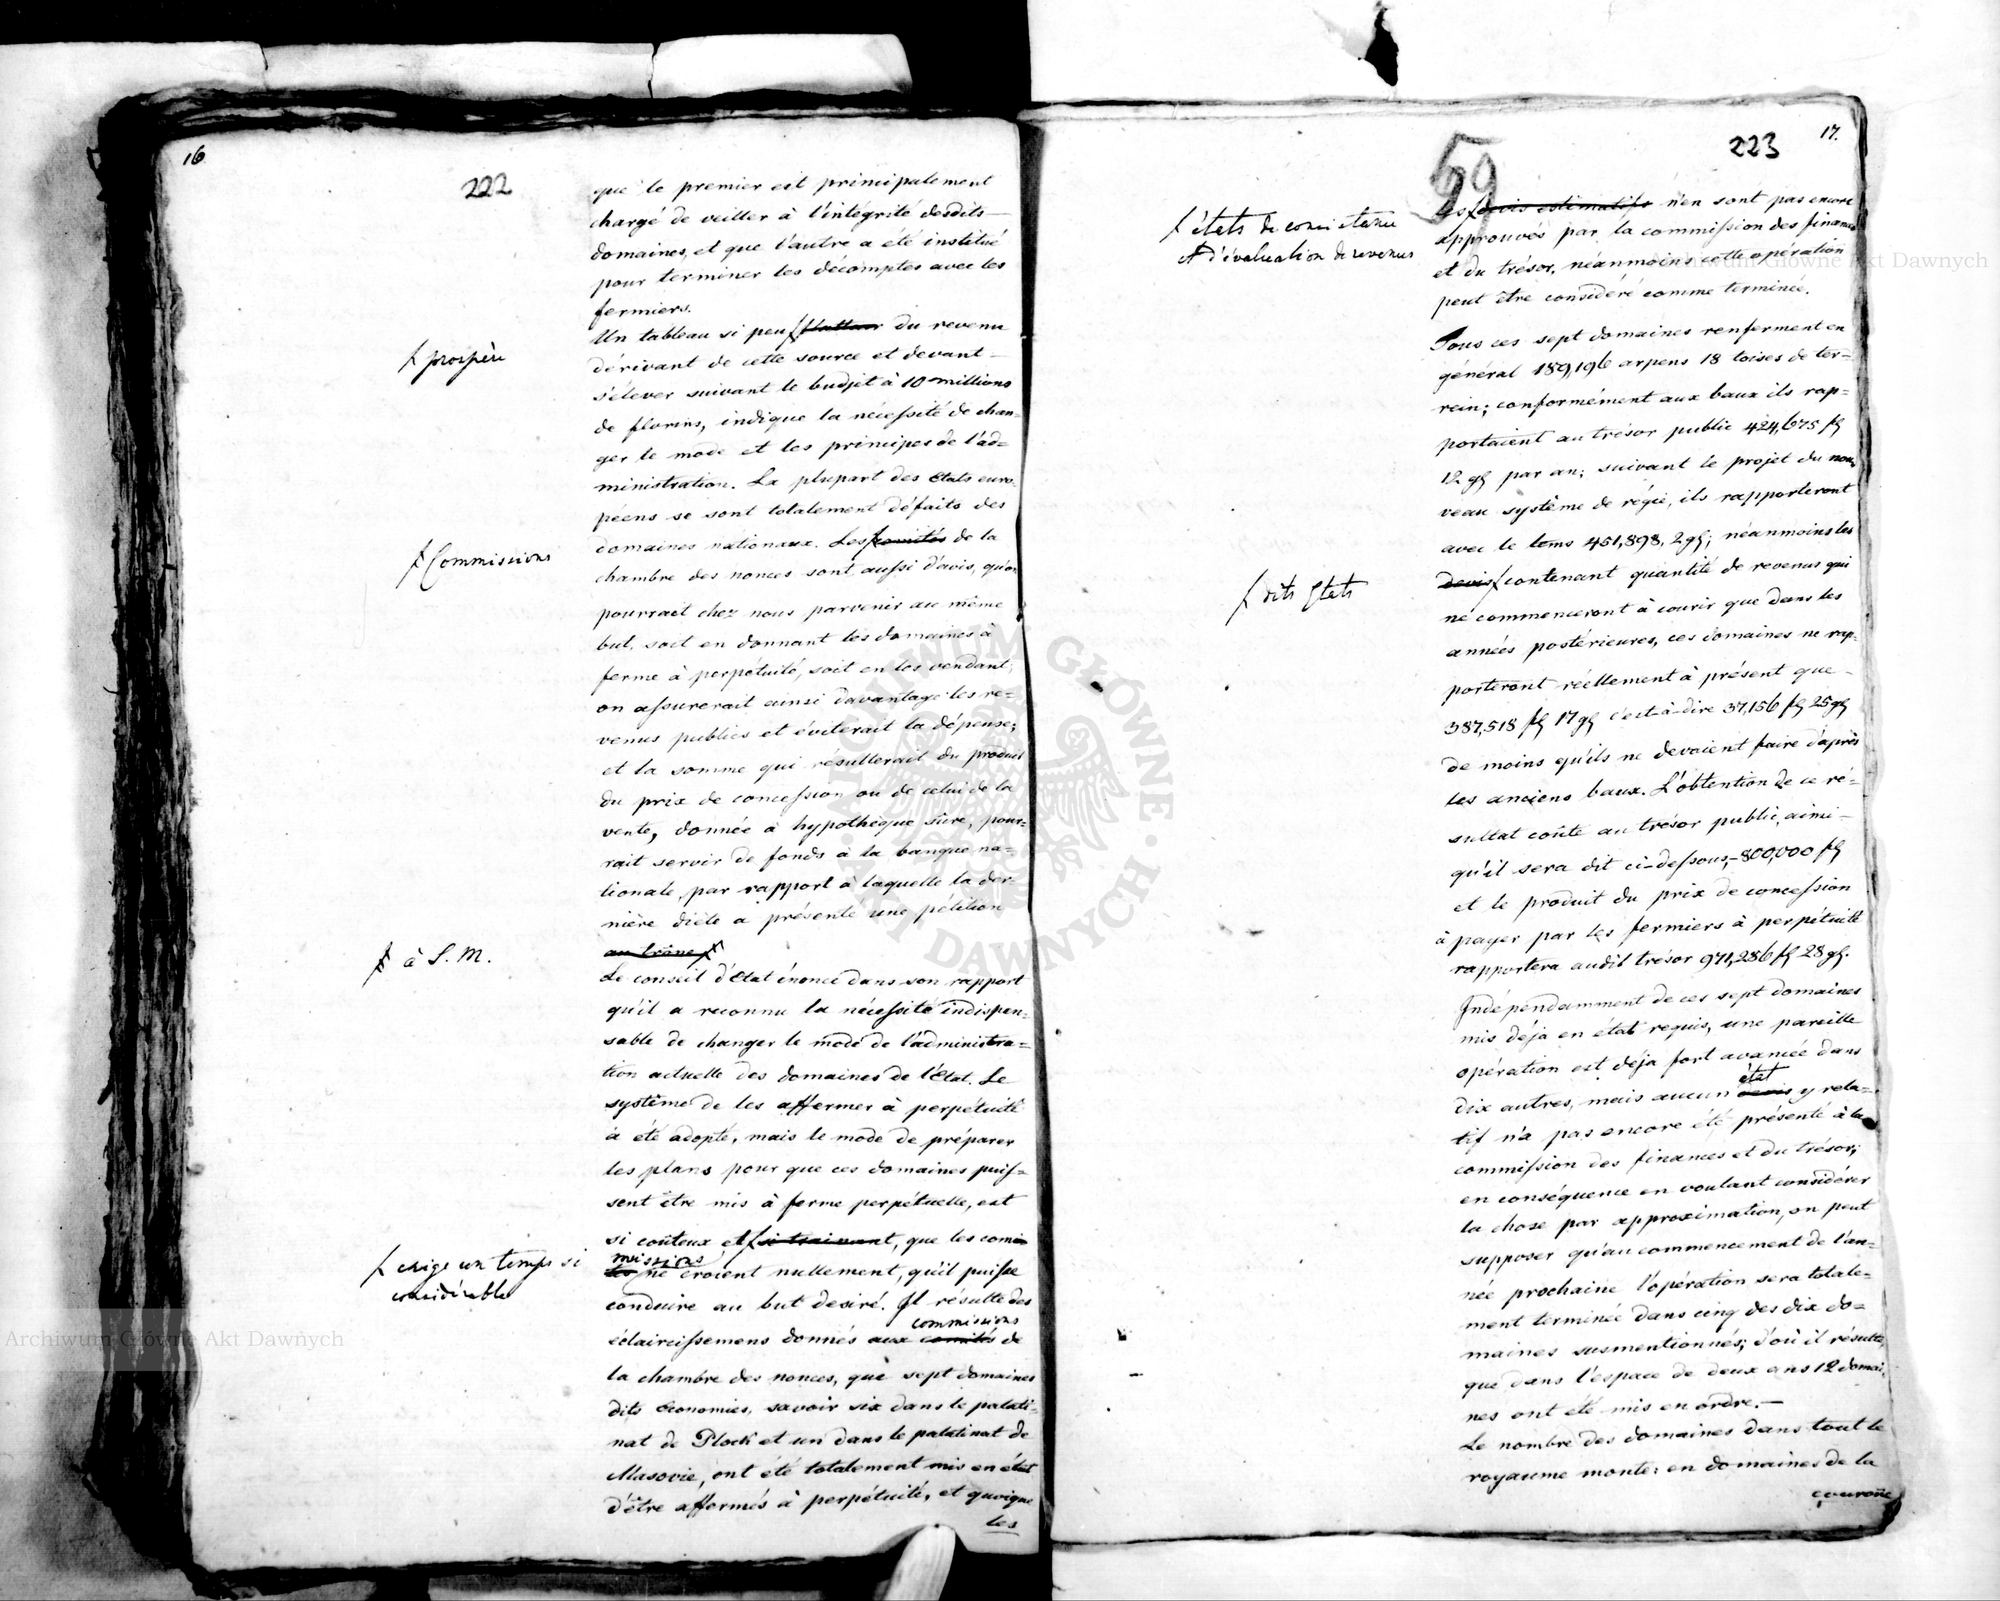 16
222
que le premier est principalement
chargé de veiller à l'intégrité desdits
domaines, et que l'autre a été institué
pour terminer les décomptes avec les
fermiers.
Un tableau si peu du revenu
ƒ prospère
dérivant de cette source et devant
s'élever suivant le budjet à 10 millions
de florins, indique la nécessité de chan=
ger le mode et les principes de l'ad=
ministration. La plupart des Etats euro=
péens se sont totalement défaits des
domaines nationaux. Les comités de la
ƒ Commissions
chambre des nonces sont aussi d'avis, qu'on
pourrait chez nous parvenir au même
but, soit en donnant les domaines à
ferme à perpétuité, soit en les vendant;
on assurerait ainsi davantage les re=
venus publics et éviterait la dépense;
et la somme qui résulterait du produit
du prix de concession ou de celui de la
vente, donnée à hypothèque sûre, pour=
rait servir de fonds à la banque na=
tionale, par rapport à laquelle la der=
nière diète a présenté une pétition
au trône ƒ
ƒ à S. M.
Le conseil d'Etat énonce dans son rapport
qu'il a reconnu la nécessité indispen=
sable de changer le mode de l'administra=
tion actuelle des domaines de l'Etat. Le
système de les affermer à perpétuité
a été adopté, mais le mode de préparer
les plans pour que ces domaines puis=
sent être mis à ferme perpétuelle, est
si coûteux et ƒ si traînant, que les com
ƒ exige un temps si
considérable
missions
ne croient nullement, qu'il puisse
conduire au but desiré. Il résulte des
commissions
éclaircissemens donnés aux comités de
la chambre des nonces, que sept domaines
dits économies, savoir six dans le palati=
nat de Plock et un dans le palatinat de
Masovie, ont été totalement mis en état
d'être affermés à perpétuité, et quoique
les
17.
223
59
les ƒ devis estimatifs n'en sont pas encore
ƒ états de consistance
et d'évaluation de revenus
approuvés par la commission des finances
et du trésor, néanmoins cette opération
peut être considéré comme terminée.
Tous ces sept domaines renferment en
général 189,196 arpens 18 toises de ter=
rein; conformément aux baux ils rap=
portaient au trésor public 424,675 fl
12 gl par an; suivant le projet du nou=
veau système de régie, ils rapporteront
avec le tems 451,898, 2 gl; néanmoins les
devis ƒ contenant quantité de revenus qui
ƒ dits Etats
ne commenceront à courir que dans les
années postérieures, ces domaines ne rap=
porteront réellement à présent que
387,518 fl 17 gl c'est-à-dire 37,156 fl 25 gl
de moins qu'ils ne devoient faire d'après
les anciens baux. L'obtention de ce ré=
sultat coûte au trésor public, ainsi
qu'il sera dit ci-dessous, 800,000 fl
et le produit du prix de concession
à payer par les fermiers à perpétuité
rapportera audit trésor 971,286 fl 28 gl.
Indépendamment de ces sept domaines
mis déja en état requis, une pareille
opération est déja fort avancée dans
état
dix autres, mais aucun devis y rela=
tif n'a pas encore été présenté à la
commission des finances et du trésor;
en conséquence en voulant considérer
la chose par approximation, on peut
supposer qu'au commencement de l'an=
née prochaine l'opération sera totale=
ment terminée dans cinq des dix do=
maines susmentionnés; d'où il résulte,
que dans l'espace de deux ans 12 domai=
nes ont été mis en ordre.
Le nombre des domaines dans tout le
royaume monte: en domaines de la
couronne
Archiwum Główne Akt Dawnych
Archiwum Główne Akt Dawnych
ARCHIWUM GŁÓWNE AKT DAWNYCH